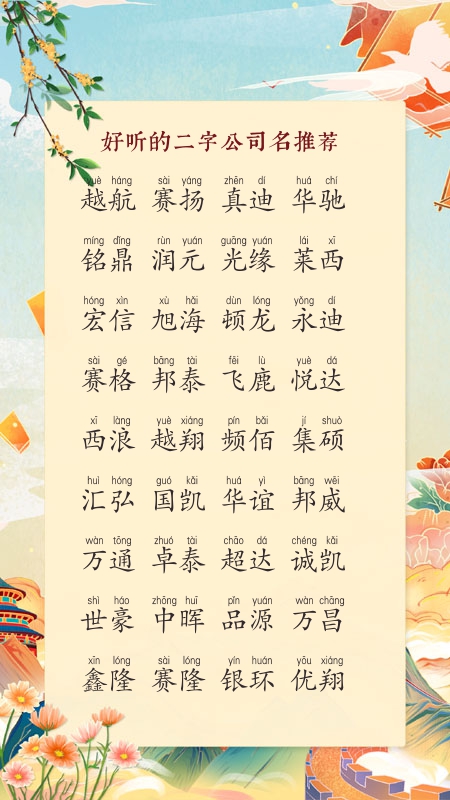 好听的二字公司名推荐
yuè háng sài yáng zhēn dí huá chí
越航 赛扬 真迪 华驰
míng dǐng rùn yuán guāng yuán lái xī
铭鼎 润元 光缘 莱西
hóng xìn xù hǎi dùn lóng yǒng dí
宏信 旭海 顿龙 永迪
sài gé bāng tài fēi lù yuè dá
赛格 邦泰 飞鹿 悦达
xī làng yuè xiáng pín bǎi jí shuò
西浪 越翔 频佰 集硕
huì hóng guó kǎi huá yì bāng wēi
汇弘 国凯 华谊 邦威
wàn tōng zhuó tài chāo dá chéng kǎi
万通 卓泰 超达 诚凯
shì háo zhōng huī pǐn yuán wàn chāng
世豪 中晖 品源 万昌
xīn lóng sài lóng yín huán yōu xiáng
鑫隆 赛隆 银环 优翔